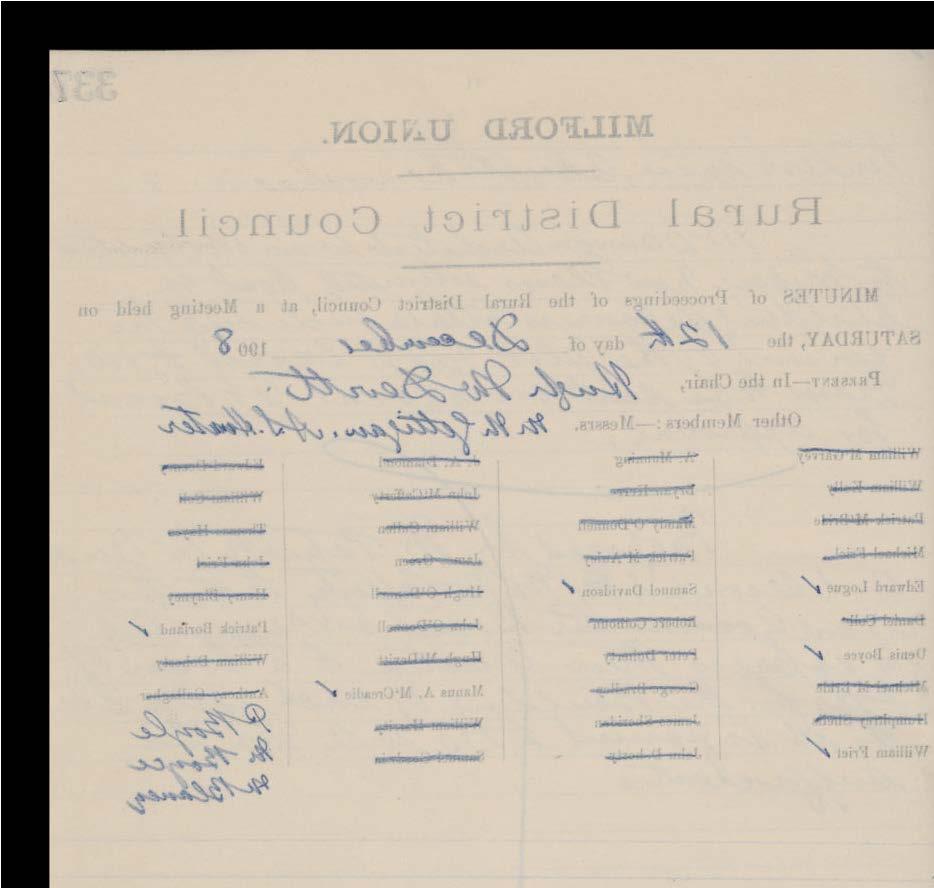 337
MILFORD UNION.
Rural District Council.
MINUTES of Proceedings of the Rural District Council, at a Meeting held on
SATURDAY, the 12th day of December 1908
PRESENT—In the Chair, Hugh McDevitt.
Other Members:—Messrs. A.S. Hunter
William McGarvey A. Manning Diamond Edward
William Kelly Bryan John McCafferty William Coll
Patrick McBride Mandy O'Donnell William Cullen Thomas Hayes
Michael Friel Patrick McAuley James Green John
Edward Logue Samuel Davidson Hugh O'Donnell Henry Blayney
Daniel Coll Robert Colhoun John O'Donnell Patrick Borland
Denis Boyce Peter Doherty Hugh McDevitt William Doherty
Michael McBride George Bradley Manus A. McCreadie Anthony Gallagher
Humphry James Sheridan William
William Friel John Doherty Samuel
P Boyle
M Boyce